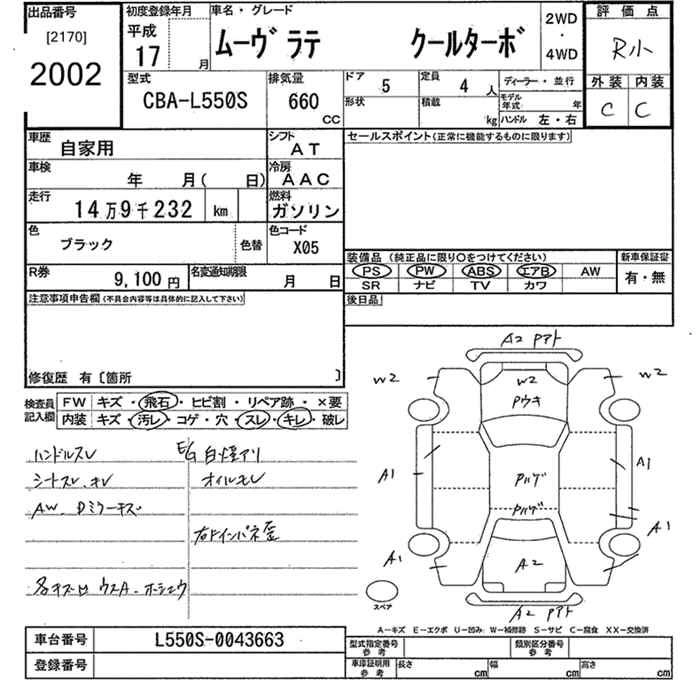 出品番号
[2170]
2002
初度登録年月
平成
17 月
車名・グレード
ムーヴ ラテ クールターボ
2WD
・
4WD
評価点
R小
型式
CBA-L550S
排気量
660
CC
ドア
5
定員
4 人
形状
積載
kg
ディーラー・並行
モデル
年式 年
ハンドル 左・右
外装 内装
C C
車歴
自家用
シフト
AT
車検
年 月( 日)
冷房
AAC
走行
14万9千232 km
燃料
ガソリン
色
ブラック
色替
色コード
X05
R券
9,100 円
名変通知期限
月 日
セールスポイント(正常に機能するものに限ります)
装備品 (純正品に限り○をつけてください)
新車保証書
PS PW ABS エアB AW
SR ナビ TV カワ
有・無
後日品
注意事項申告欄(不具合内容等は具体的に記入して下さい)
修復歴 有〔箇所 〕
検査員
記入欄
FW キズ・飛石・ヒビ割・リペア跡・×要
内装 キズ・汚レ・コゲ・穴・スレ・キレ・破レ
ハンドルスレ
シートスレ、キレ
AW、Dミラーキズ
E/G白煙アリ
オイルモレ
右ドインパネ歪
各キズ凹 ウスA・ホシュウ
A2 Pアト
W2
W2
W2
Pウキ
A1
A1
Pハゲ
Pハゲ
A1
A1
A2
A2 Pアト
スペア
A－キズ E－エクボ U－凹み W－補修跡 S－サビ C－腐食 XX－交換済
車台番号
L550S-0043663
登録番号
型式指定番号
参考
類別区分番号
参考
車庫証明用
参考
長さ cm
幅 cm
高さ cm